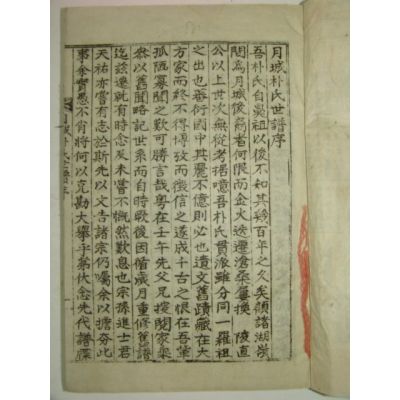 月城朴氏世譜序
吾朴氏自吳祖以後不知其幾百年之久矣顧諸湖嶺
間爲月城後裔者何限而金火迭遷滄桑屢換 陵直
公以上世次無從考据噫吾朴氏貫派雖分同一羅祖
之出也蕃衍國中其麗不億則必也遺文舊蹟藏在大
方家而終不得博攷而徵信之遂成千古之恨在吾輩
孤陋寡聞之列可勝言哉粤在壬午先父兄搜閱家乘
參以舊聞略記世系而自時厥後因循歲月重修舊譜
迄玆遷就有時念及未嘗不慨然歎息也宗孫進士君
天祐亦嘗有志於斯先以文告諸宗仍囑余以擔夯此
事余實愚不肖將何以克勘大擧乎第伏念先代譜牒